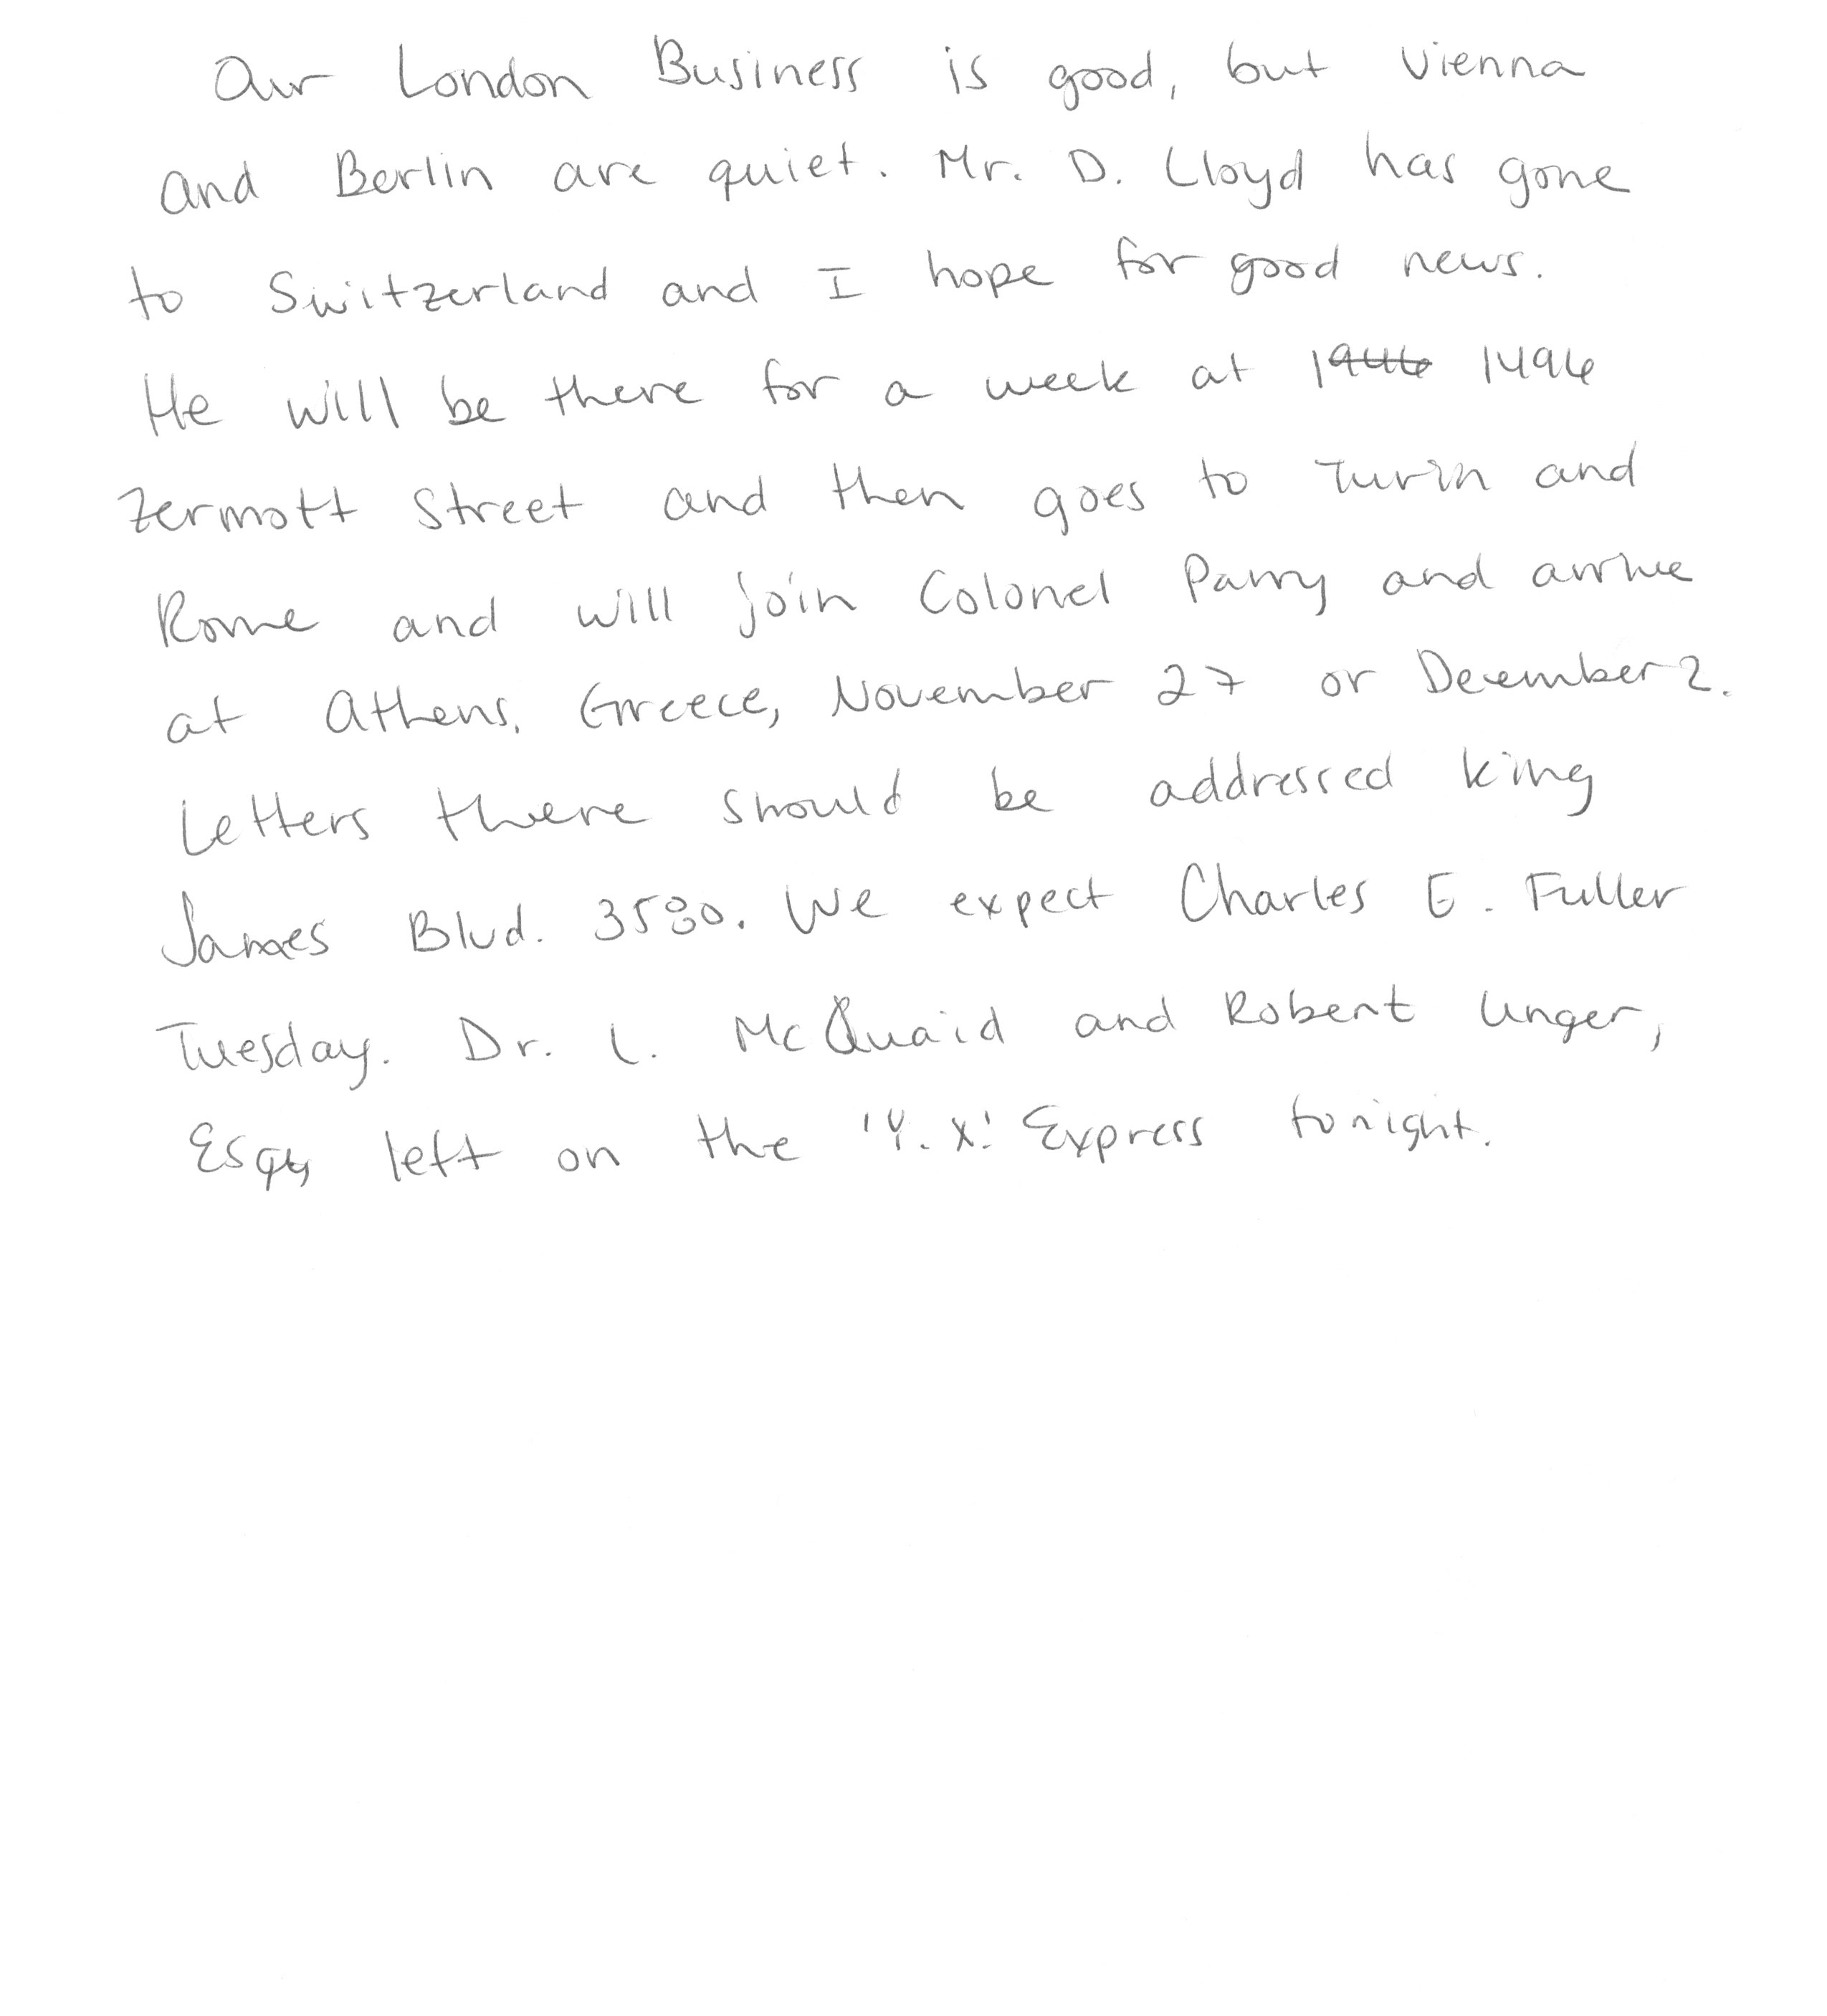 Our London Business is good, but Vienna
and Berlin are quiet. Mr. D. Lloyd has gone
to Switzerland and I hope for good news.
He will be there for a week at 1496
Zermott Street and then goes to Turin and
Rome and will join Colonel Parry and arrive
at Athens, Greece, November 27 or December 2.
Letters there should be addressed King
James Blvd. 3580. We expect Charles E. Fuller
Tuesday. Dr. L. McQuaid and Robert Unger,
Esq., left on the 'Y.X.' Express tonight.